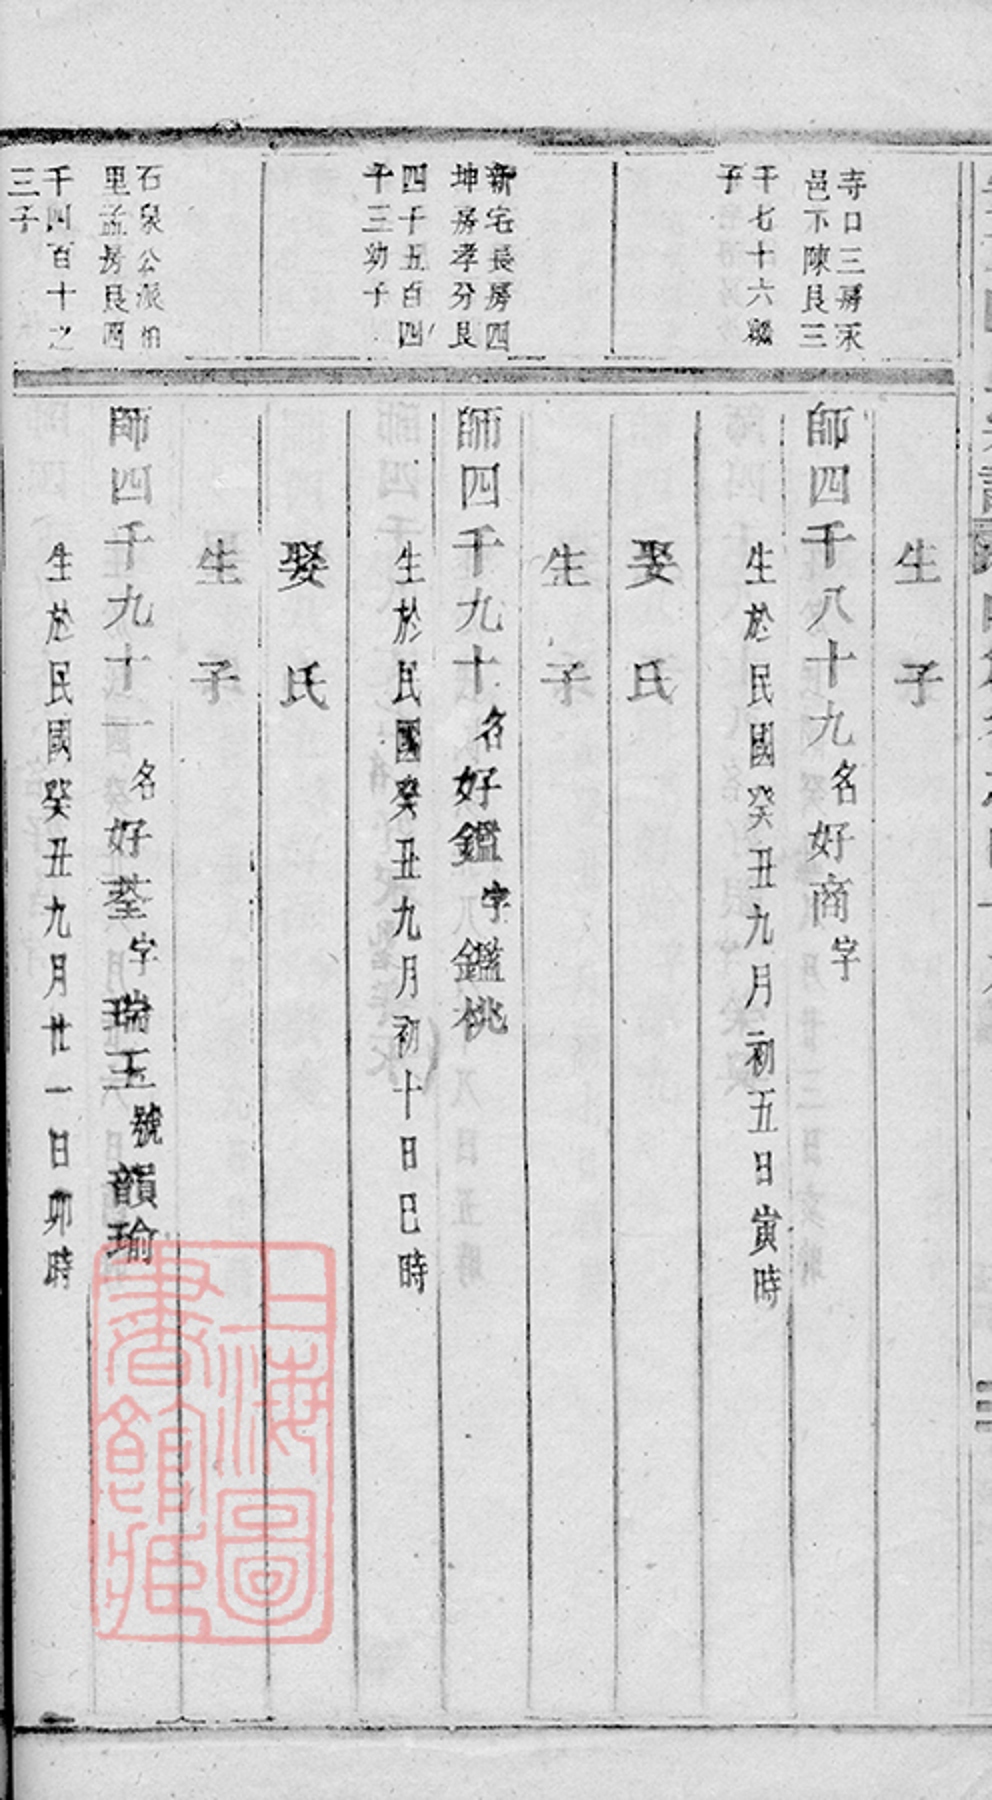 生子
寺口三房永
邑下陳良三
千七十六繼
子
師四千八十九名好商字
生於民國癸丑九月初五日寅時
娶氏
生子
新宅長房四
坤房孝分良
四千五百四
十三幼子
師四千九十名好鑑字鑑桃
生於民國癸丑九月初十日巳時
娶氏
生子
石泉公派伯
里孟房良四
千四百十之
三子
師四千九十一名好荃字瑞玉號韻瑜
生於民國癸丑九月廿一日卯時
上海圖書館藏